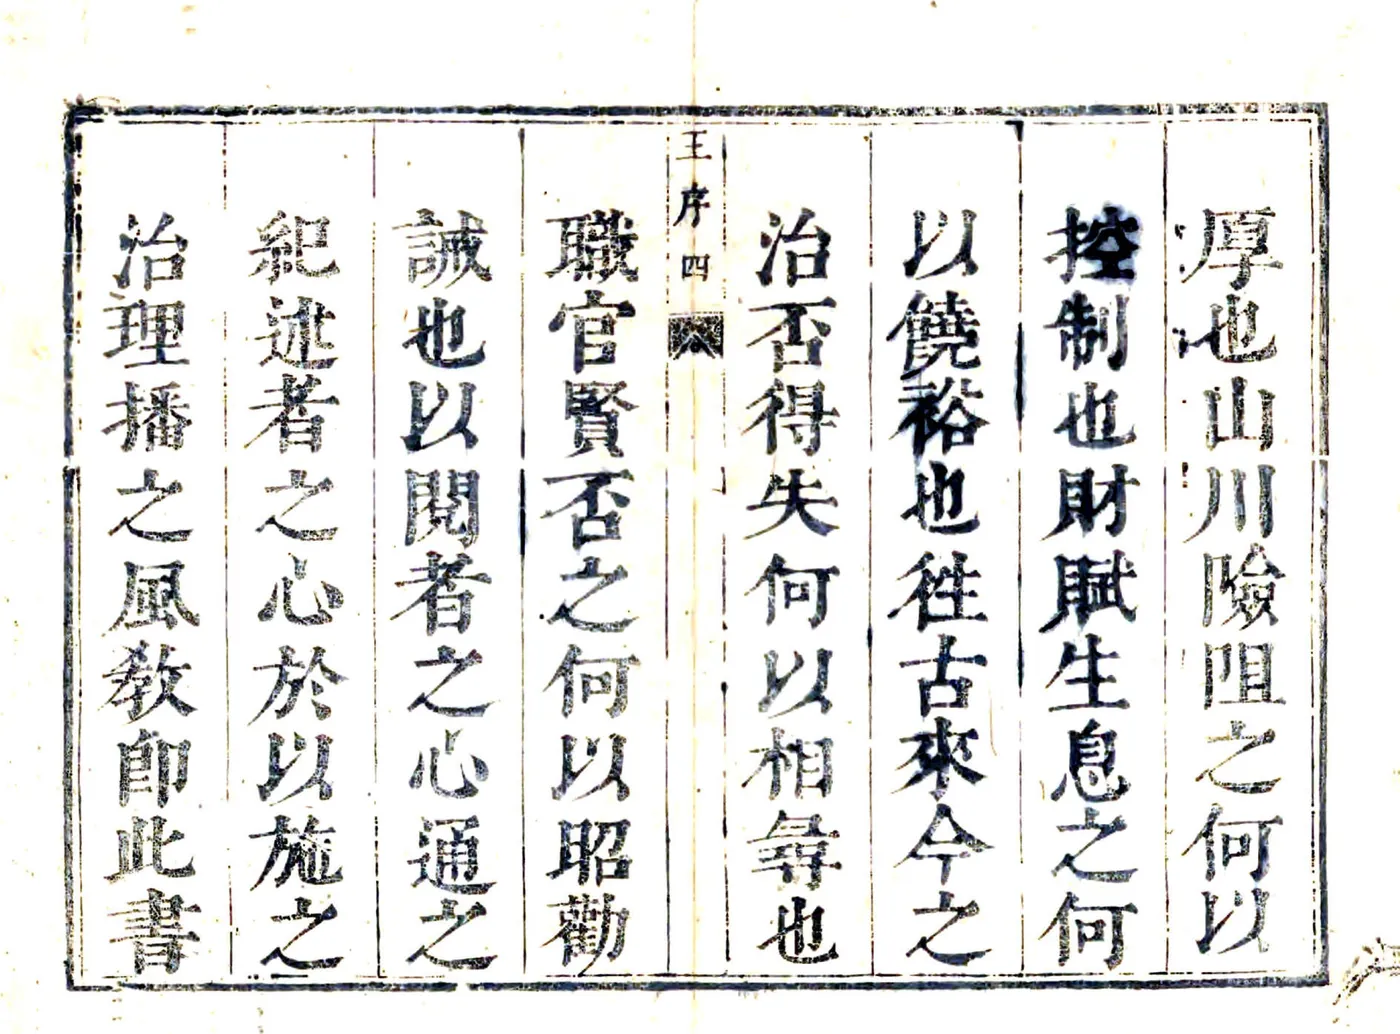 厚也山川險阻之何以
控制也財賦生息之何
以饒裕也徃古來今之
治否得失何以相尋也
王序 四
職官賢否之何以昭勸
誡也以閱者之心通之
紀述者之心於以施之
治理播之風教即此書